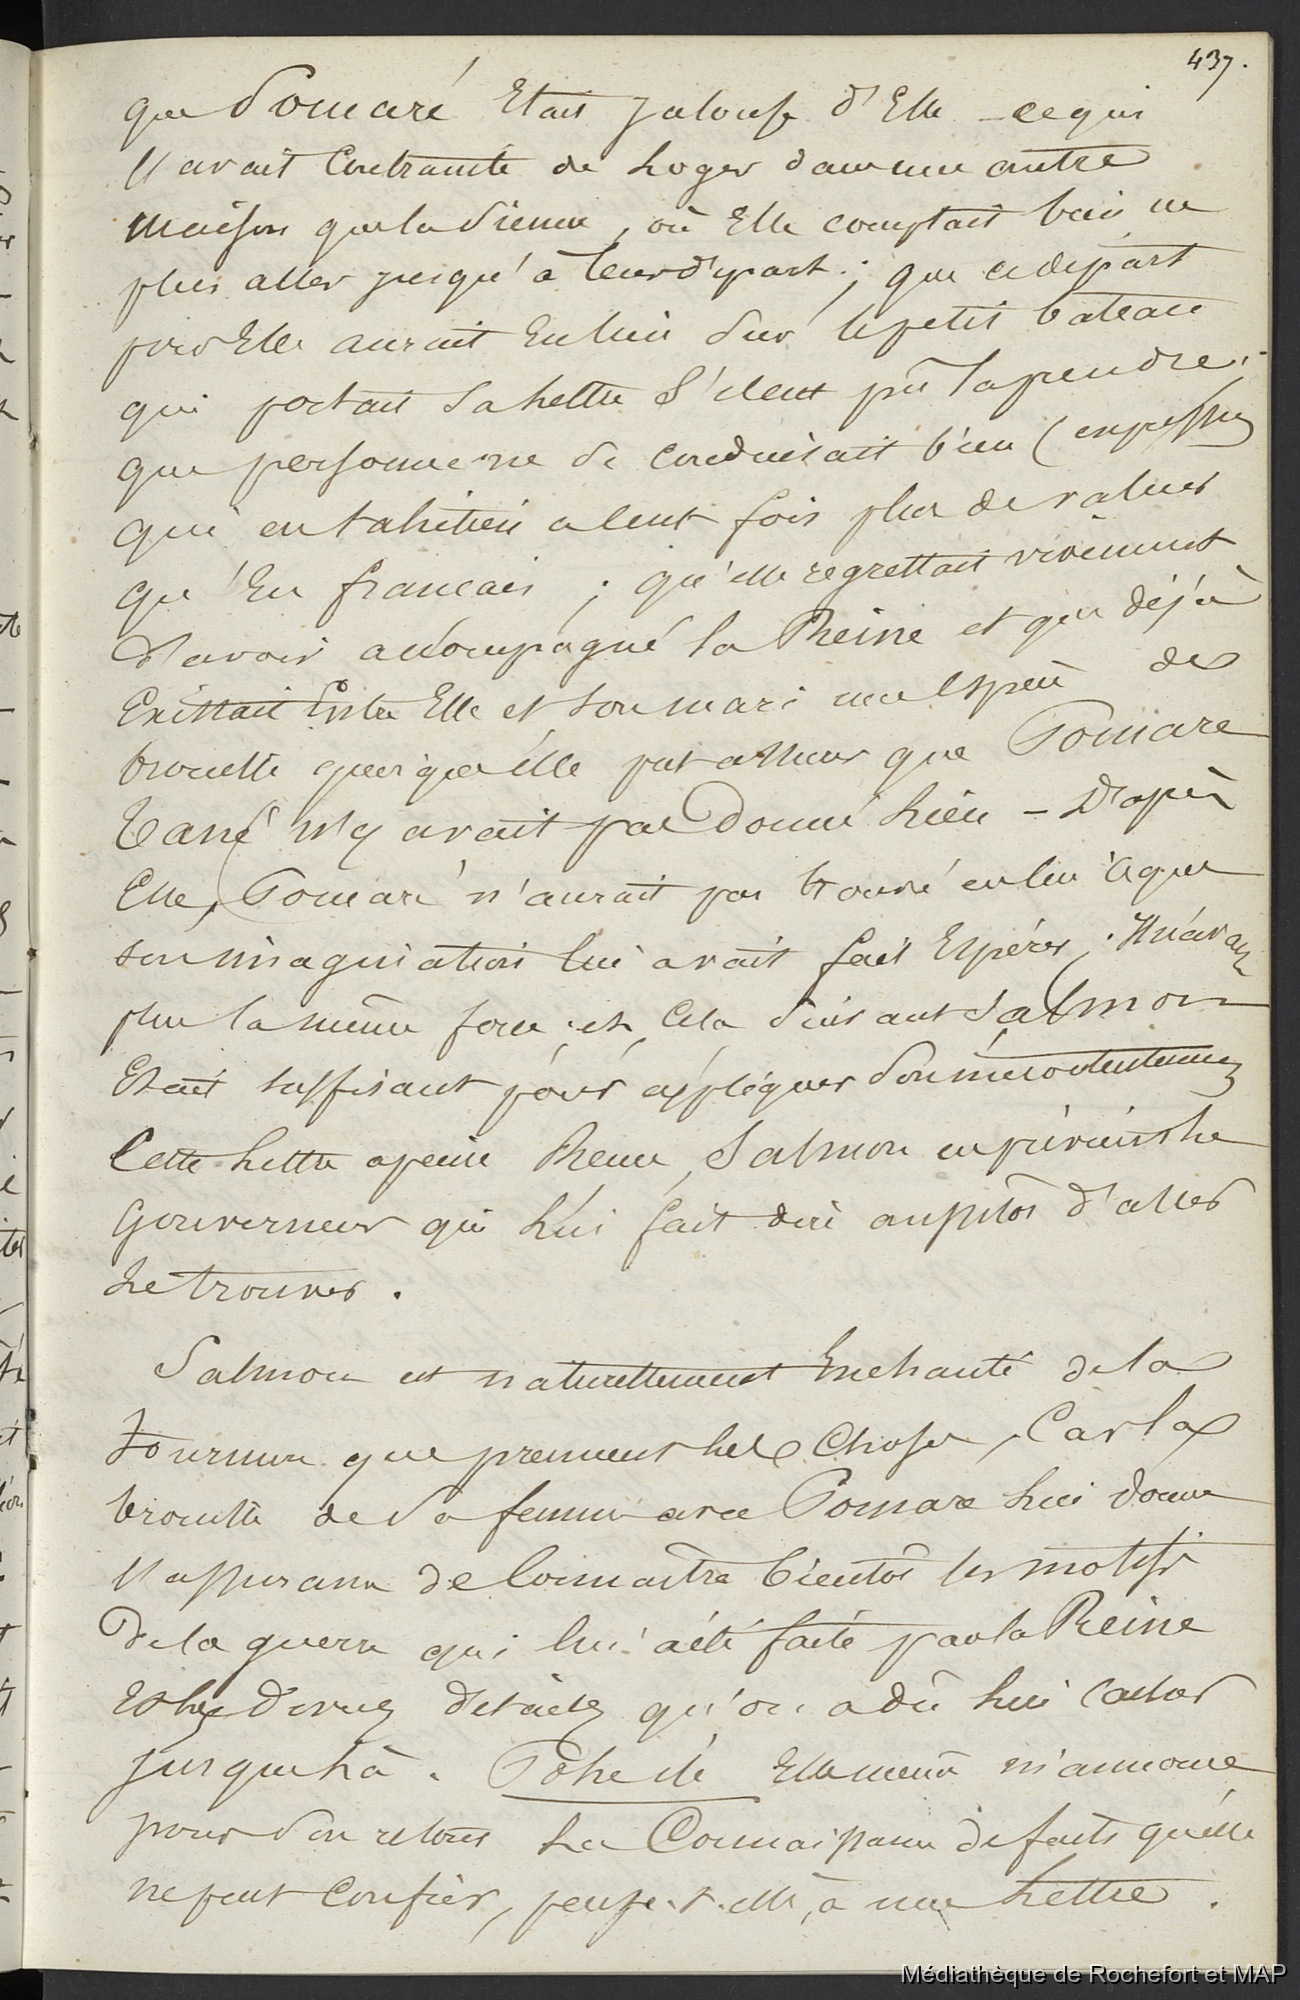 437.
que Pomaré Etait jalouse d'Elle - ce qui
l'avait Contrainte de Loger dans une autre
Maison que la Sienne, où Elle comptait bien ne
plus aller jusqu'à leur départ ; que ce départ
pour Elle aurait Eu lieu Sur le petit bateau
qui portait Sa Lettre S'il eut pû la prendre ;
que personne ne Se conduisait bien (expression
qui en tahitien a cent fois plus de valeur
qu'En français ; qu'elle regrettait vivement
d'avoir accompagné la Reine et que déjà
Existait Entre Elle et Son mari une Espèce de
brouille quoiqu'elle put assurer que Pomare
Tané n'y avait pas Donné Lieu - D'après
Elle, Pomaré n'aurait pas trouvé en lui ce que
Son imagination lui avait fait Espérer ; Il n'avait
plus la même force et Cela Suivant Salmon
Etait suffisant pour expliquer Son mécontentement
Cette Lettre a peine Reçue, Salmon en prévient Le
Gouverneur qui Lui fait dire aussitôt d'aller
Le trouver.
Salmon est naturellement Enchanté de la
tournure que prennent Les Choses, Car la
brouille de Sa femme avec Pomare Lui donne
l'assurance de Connaître bientôt les motifs
De la guerre qui lui a été faite par la Reine
Et les Divers détails qu'on a dû Lui Cacher
jusque Là. Pohe ité Elle même m'annonce
pour Son retour La Connaissance de faits qu'elle
ne peut Confier, pense-t-elle, à une Lettre.
Médiathèque de Rochefort et MAP